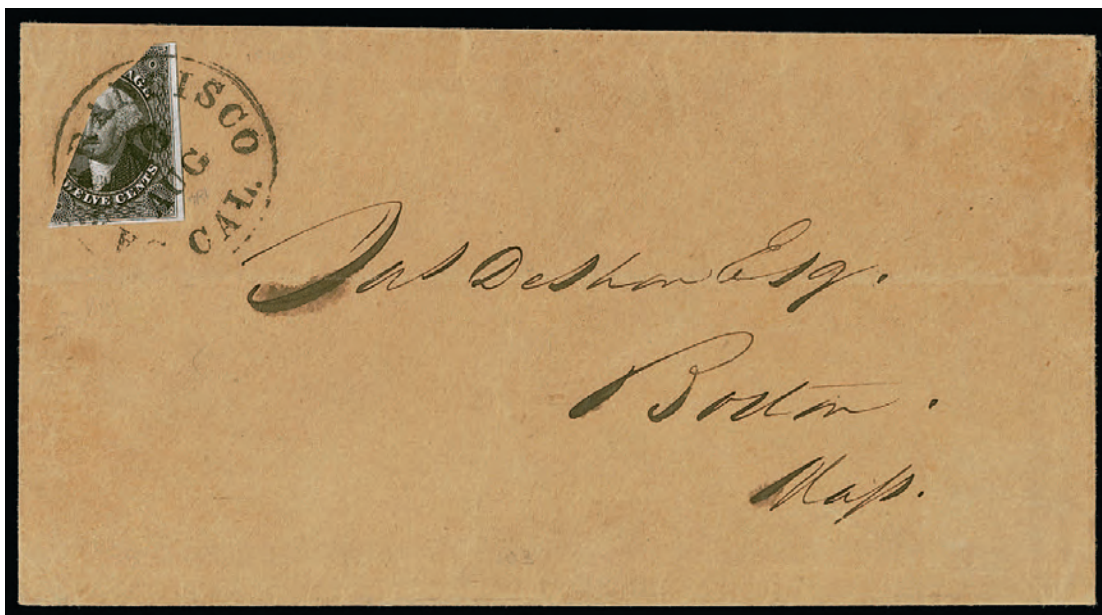 AGE
TWELVE CENTS
RAN ISCO
AUG
CAL.
Jas DeShon Esq.
Boston.
Mass.